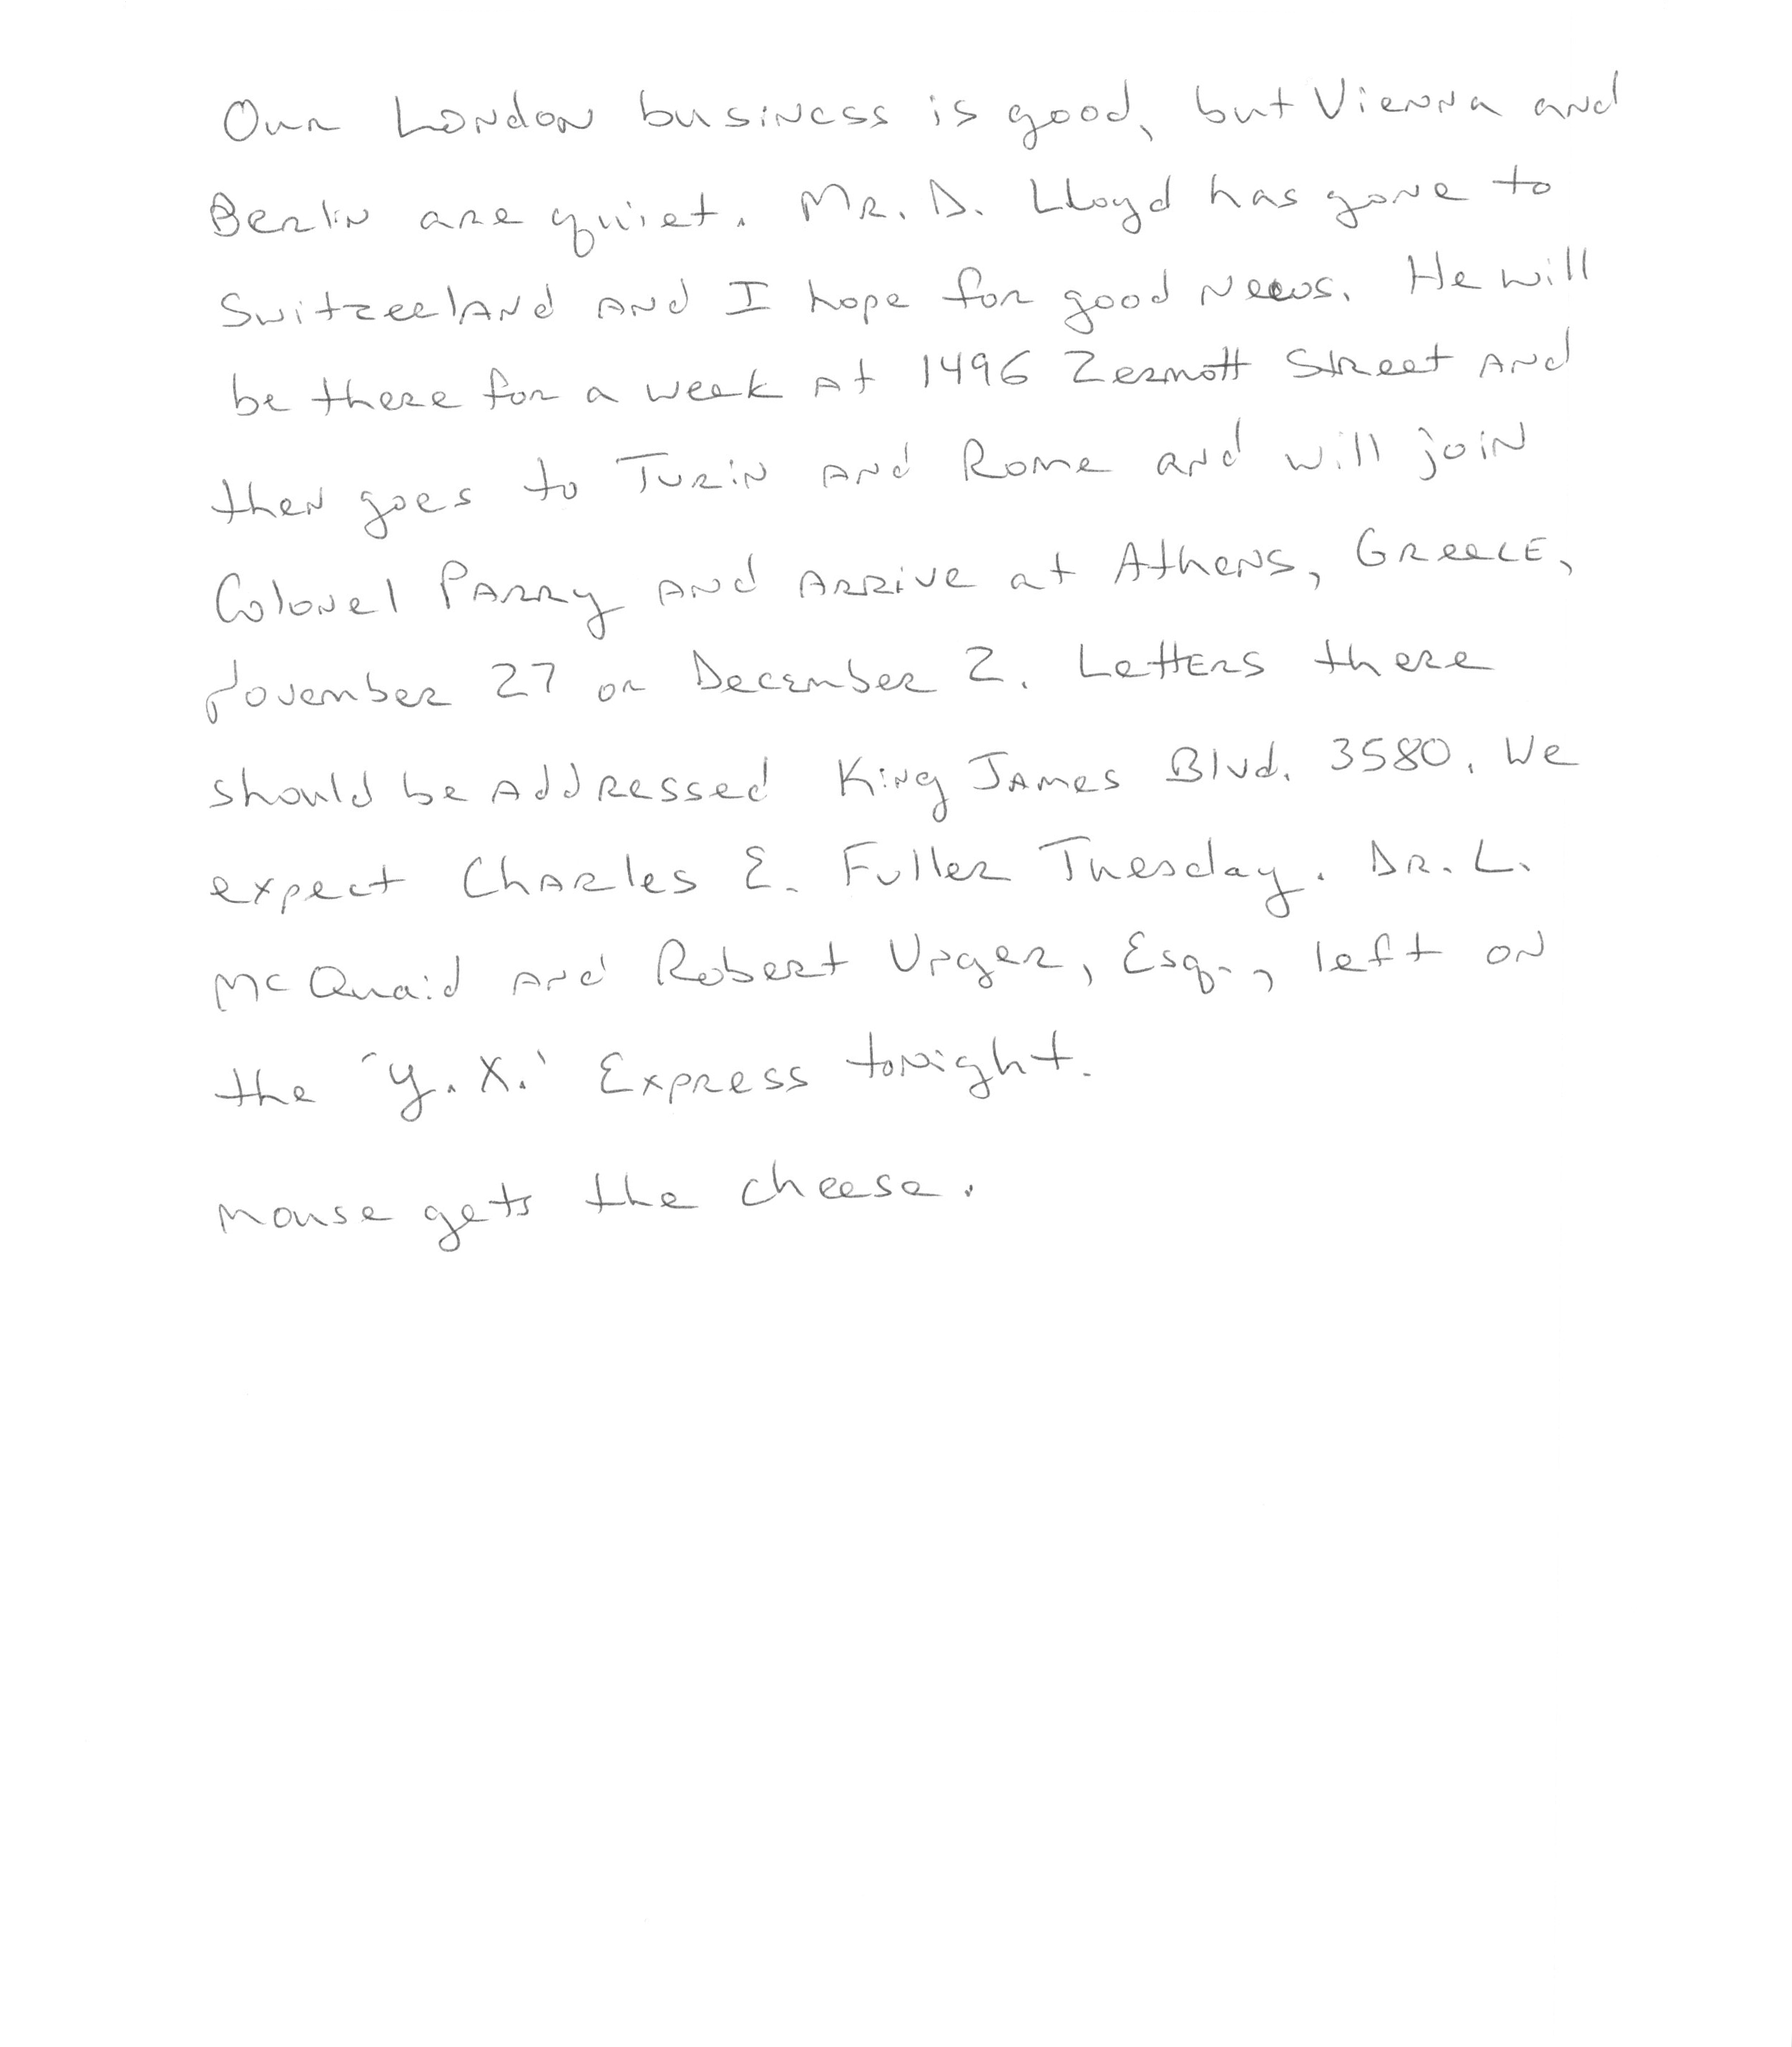 Our London business is good, but Vienna and
Berlin are quiet. Mr. D. Lloyd has gone to
Switzeeland and I hope for good news. He will
be there for a week at 1496 Zermott Street and
then goes to Turin and Rome and will join
Colonel Parry and arrive at Athens, Greece,
November 27 or December 2. Letters there
should be addressed King James Blvd. 3580. We
expect Charles E. Fuller Tuesday. Dr. L.
McQuaid and Robert Unger, Esq., left on
the 'Y. X.' Express tonight.
Mouse gets the cheese.